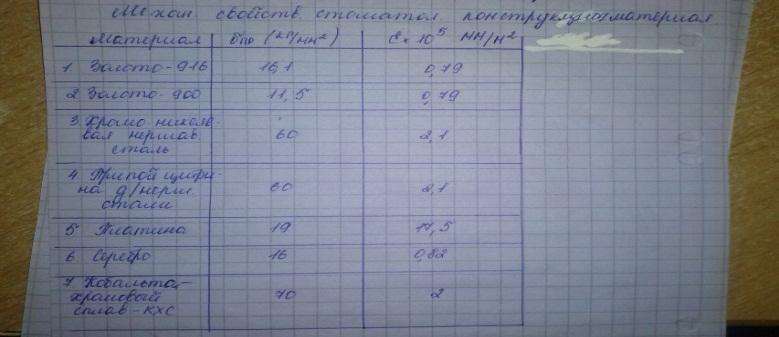 Механ. свойств. стоматол. конструкцион материал
Материал бпр (кг/мм²) Е × 10⁵ мн/м²
1. Золото-916 16,1 0,79
2. Золото-900 11,5 0,79
3. Хромо-никеле-
вая нержав. 60 2,1
сталь
4. Припой цитри-
на д/нерж. 60 2,1
стали
5 Платина 19 17,5
6 Серебро 16 0,82
7. Кобальто-
хромовый 70 2
сплав-КХС